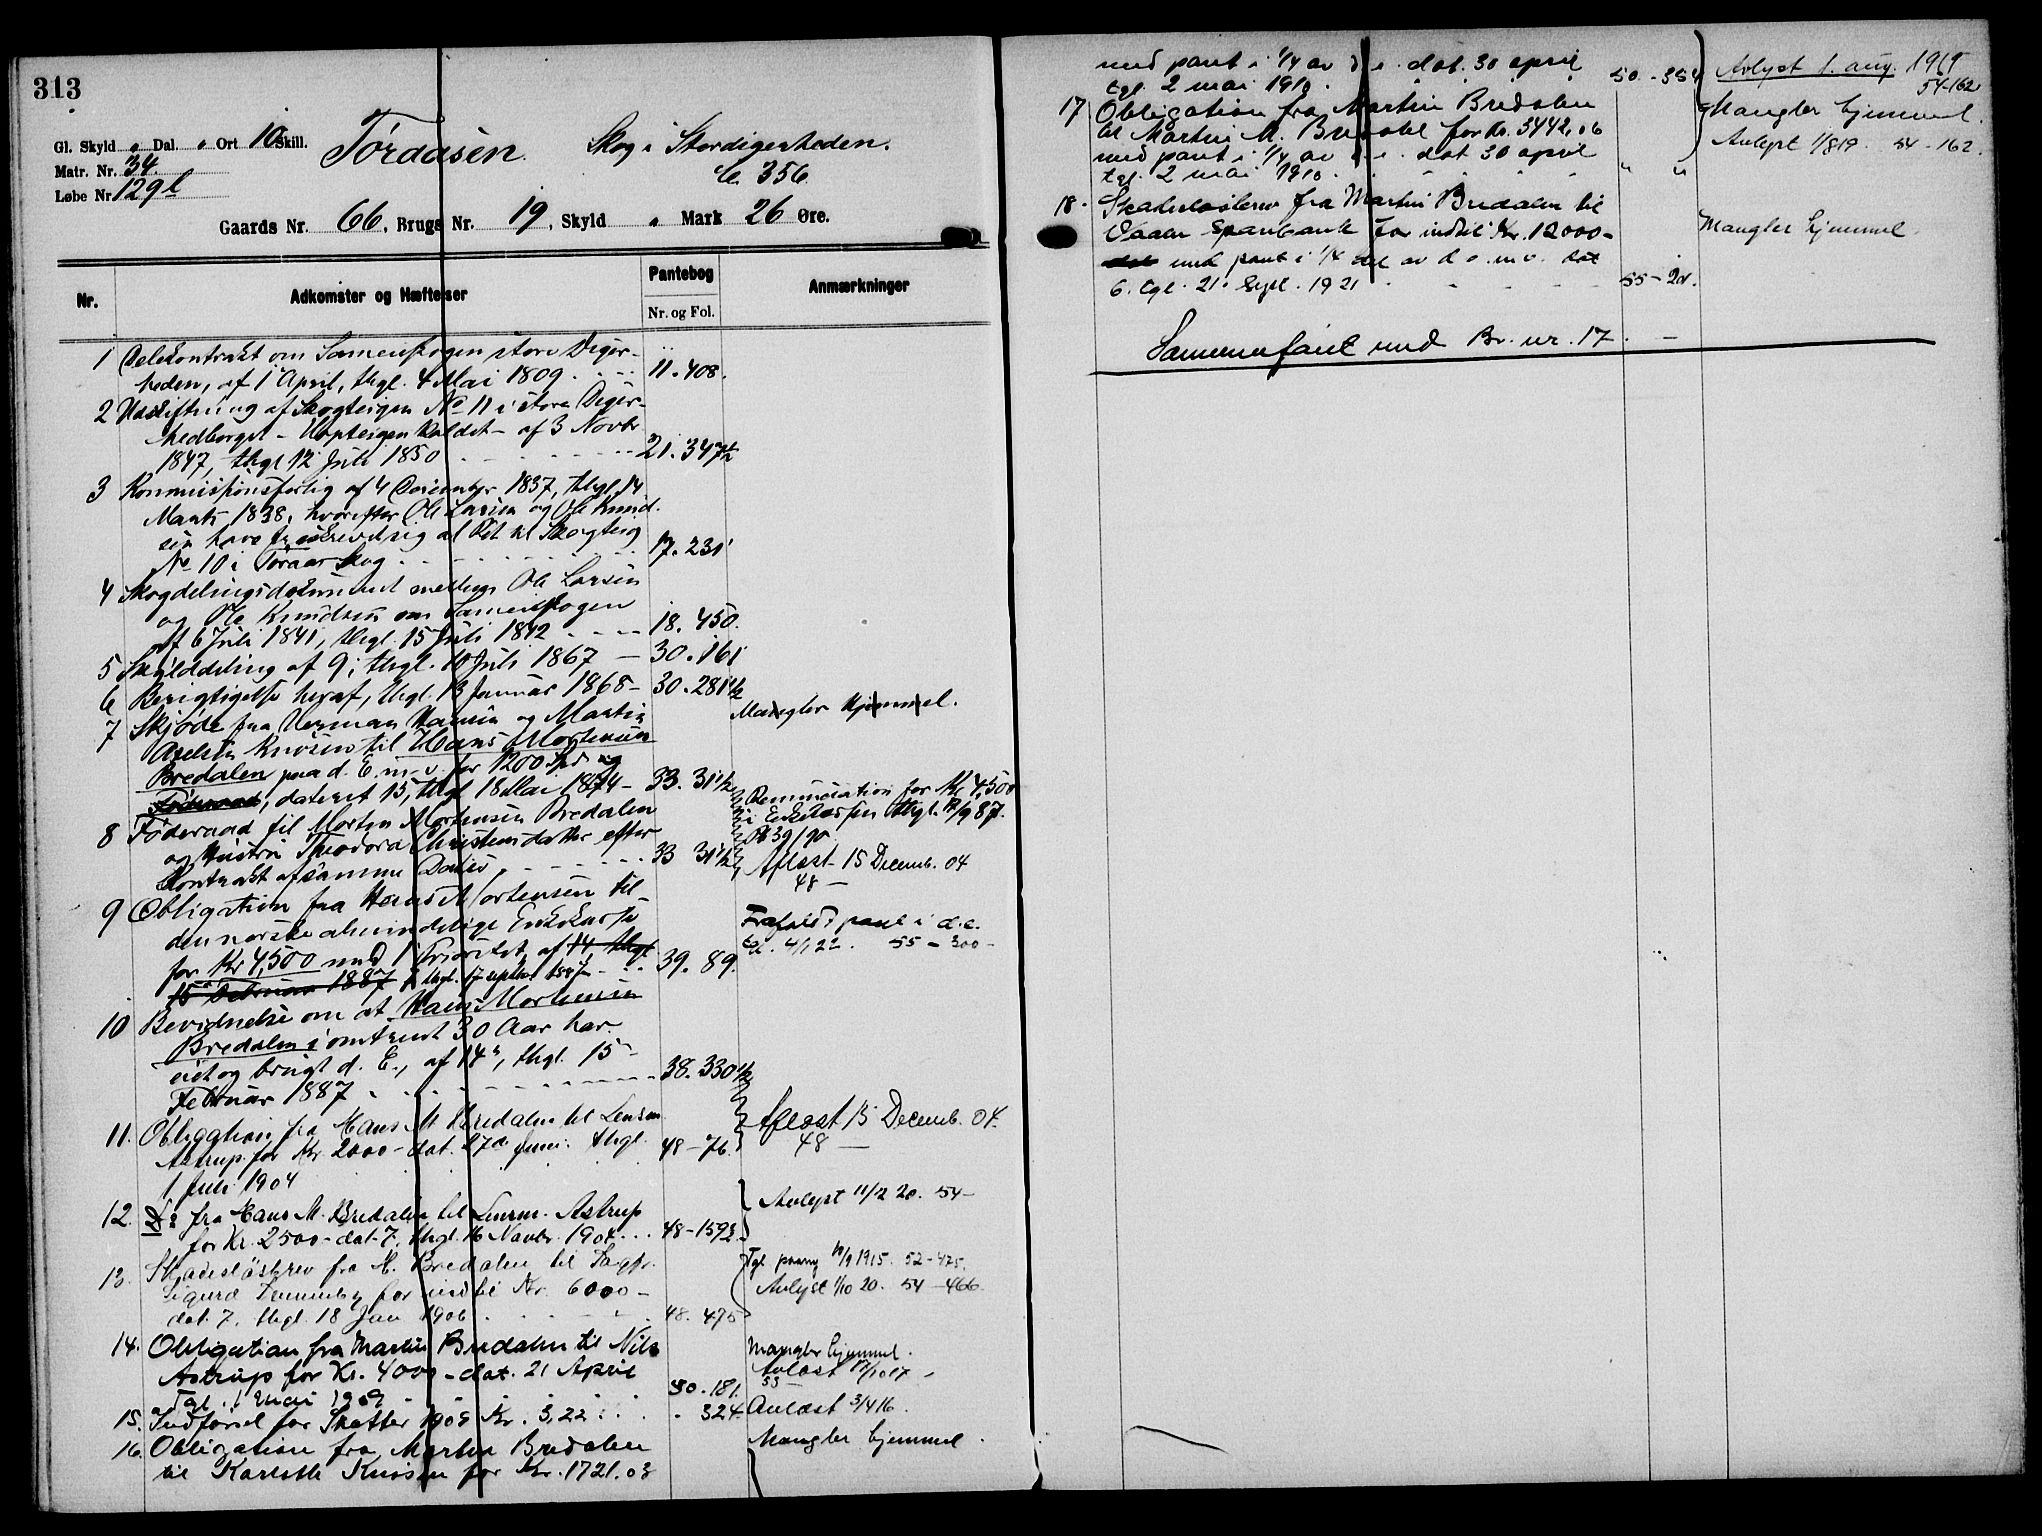 313
Gl. Skyld " Dal. " Ort 10 Skill.
Matr. Nr. 34.
Løbe Nr. 129l
Tørdaasen. Skog i Stordigerheden.
356
Gaards Nr. 66, Brugs Nr. 19, Skyld " Mark 26 Øre.
Nr. Adkomster og Hæftelser Pantebog Anmærkninger
Nr. og Fol.
1 Delekontrakt om Sameieskogen store Diger-
heden, af 1 April, thgl. 4 Mai 1809 11. 408.
2 Udskiftning af Skogteigen No 11 i store Diger-
hedberget - kaldet - af 3 Novbr
1847, thgl 12 Juli 1850 21. 347½
3 Kommissionsforlig af 4 December 1837, thgl. 14
Marts 1838, hvorefter Ole Larsen og Ole Knud-
sen have fraskrevet sig al Ret til Skogteig
No 10 i Skog 17. 231
4 Skogdelingsdokument mellem Ole Larsen
og Ole Knudsen om Sameieskogen
af 6 Juli 1841, thgl. 15 Juli 1842 18. 450.
5 Skylddeling af 9, thgl. 10 Juli 1867 — 30. 161
6 Berigtigelse heraf, thgl. 13 Januar 1868 - 30. 281½
7 Skjøde fra Herman Hansen og Martin
Knosen til Hans Mortensen
Bredalen paa d. E. m. v. for 1200 Spd og
Føderaad, dateret 15, thgl 18 Mai 1874 - 33. 31½
Mangler Hjemmel.
8 Føderaad til Morten Mortensen Bredalen
og Hustru Theodora Christensdatter efter
Kontrakt af samme Dato 33 31½
Renunciation for Kr 4,500
i Enkekassen thgl. 17/9 87.
Pb 39/90
Aflæst 15 Decemb. 04
48 —
9 Obligation fra Hans Mortensen til
den norske almindelige Enkekasse
for Kr 4,500 med 1 Prioritet, af 14, thgl
15 Februar 1887 thgl. 17 septbr 1887 39. 89.
Frafaldt pant i d.e.
tgl. 4/1 22. 55 - 300 -
10 Bevidnelse om at Hans Mortensen
Bredalen i omtrent 30 Aar har
eiet og brugt d. E., af 14, thgl. 15
Februar 1887 38. 330½
11. Obligation fra Hans M Bredalen til Lensm.
Astrup for Kr 2000 - dat. 27de Juni. thgl.
1 Juli 1904 48 - 76
Aflæst 15 Decemb. 04.
48 —
12. Do fra Hans M. Bredalen til Lensm. Astrup
for Kr. 2500 - dat. 7. thgl. 16 Novbr. 1904 48 - 159½
Avlyst 11/2 20. 54 -
13. Skadesløsbrev fra H. Bredalen til Sagfr.
Sigurd for indtil Kr. 6000 -
dat. 7, thgl. 18 Jan 1906 48. 475
Tgl. paany 10/9 1915. 52 - 425.
Avlyst 1/10 20. 54 - 466
14. Obligation fra Martin Bredalen til Nils
Astrup for Kr. 4000 - dat. 21 April
Tgl. 1 Mai 1909 50. 181.
Mangler hjemmel.
Avlæst 17/10 17
53 —
15. Indførsel for Skatter 1909 Kr. 3,22 . 324.
Avlæst 3/4 16.
16. Obligation fra Martin Bredalen
til Knosen for Kr. 1721.03
Mangler hjemmel.
med pant i ¼ av d. e. dat. 30 april
tgl. 2 mai 1910. 50 - 354
Avlyst 1. aug. 1919
54 - 162
17 Obligation fra Martin Bredalen
til Martin M. Bredalen for Kr. 3442,06
med pant i ¼ av d. e. dat 30 april
tgl. 2 mai 1910. " "
Mangler hjemmel.
Avlyst 1/8 19. 54 - 162.
18. Skadesløsbrev fra Martin Bredalen til
Vaaler Sparebank for indtil Kr. 12000 -
dat med pant i ¼ del av d e. m. v. dat
6. tgl. 21. Sept. 1921 55 - 221.
Mangler hjemmel
Sammenføiet med Br. nr. 17. —